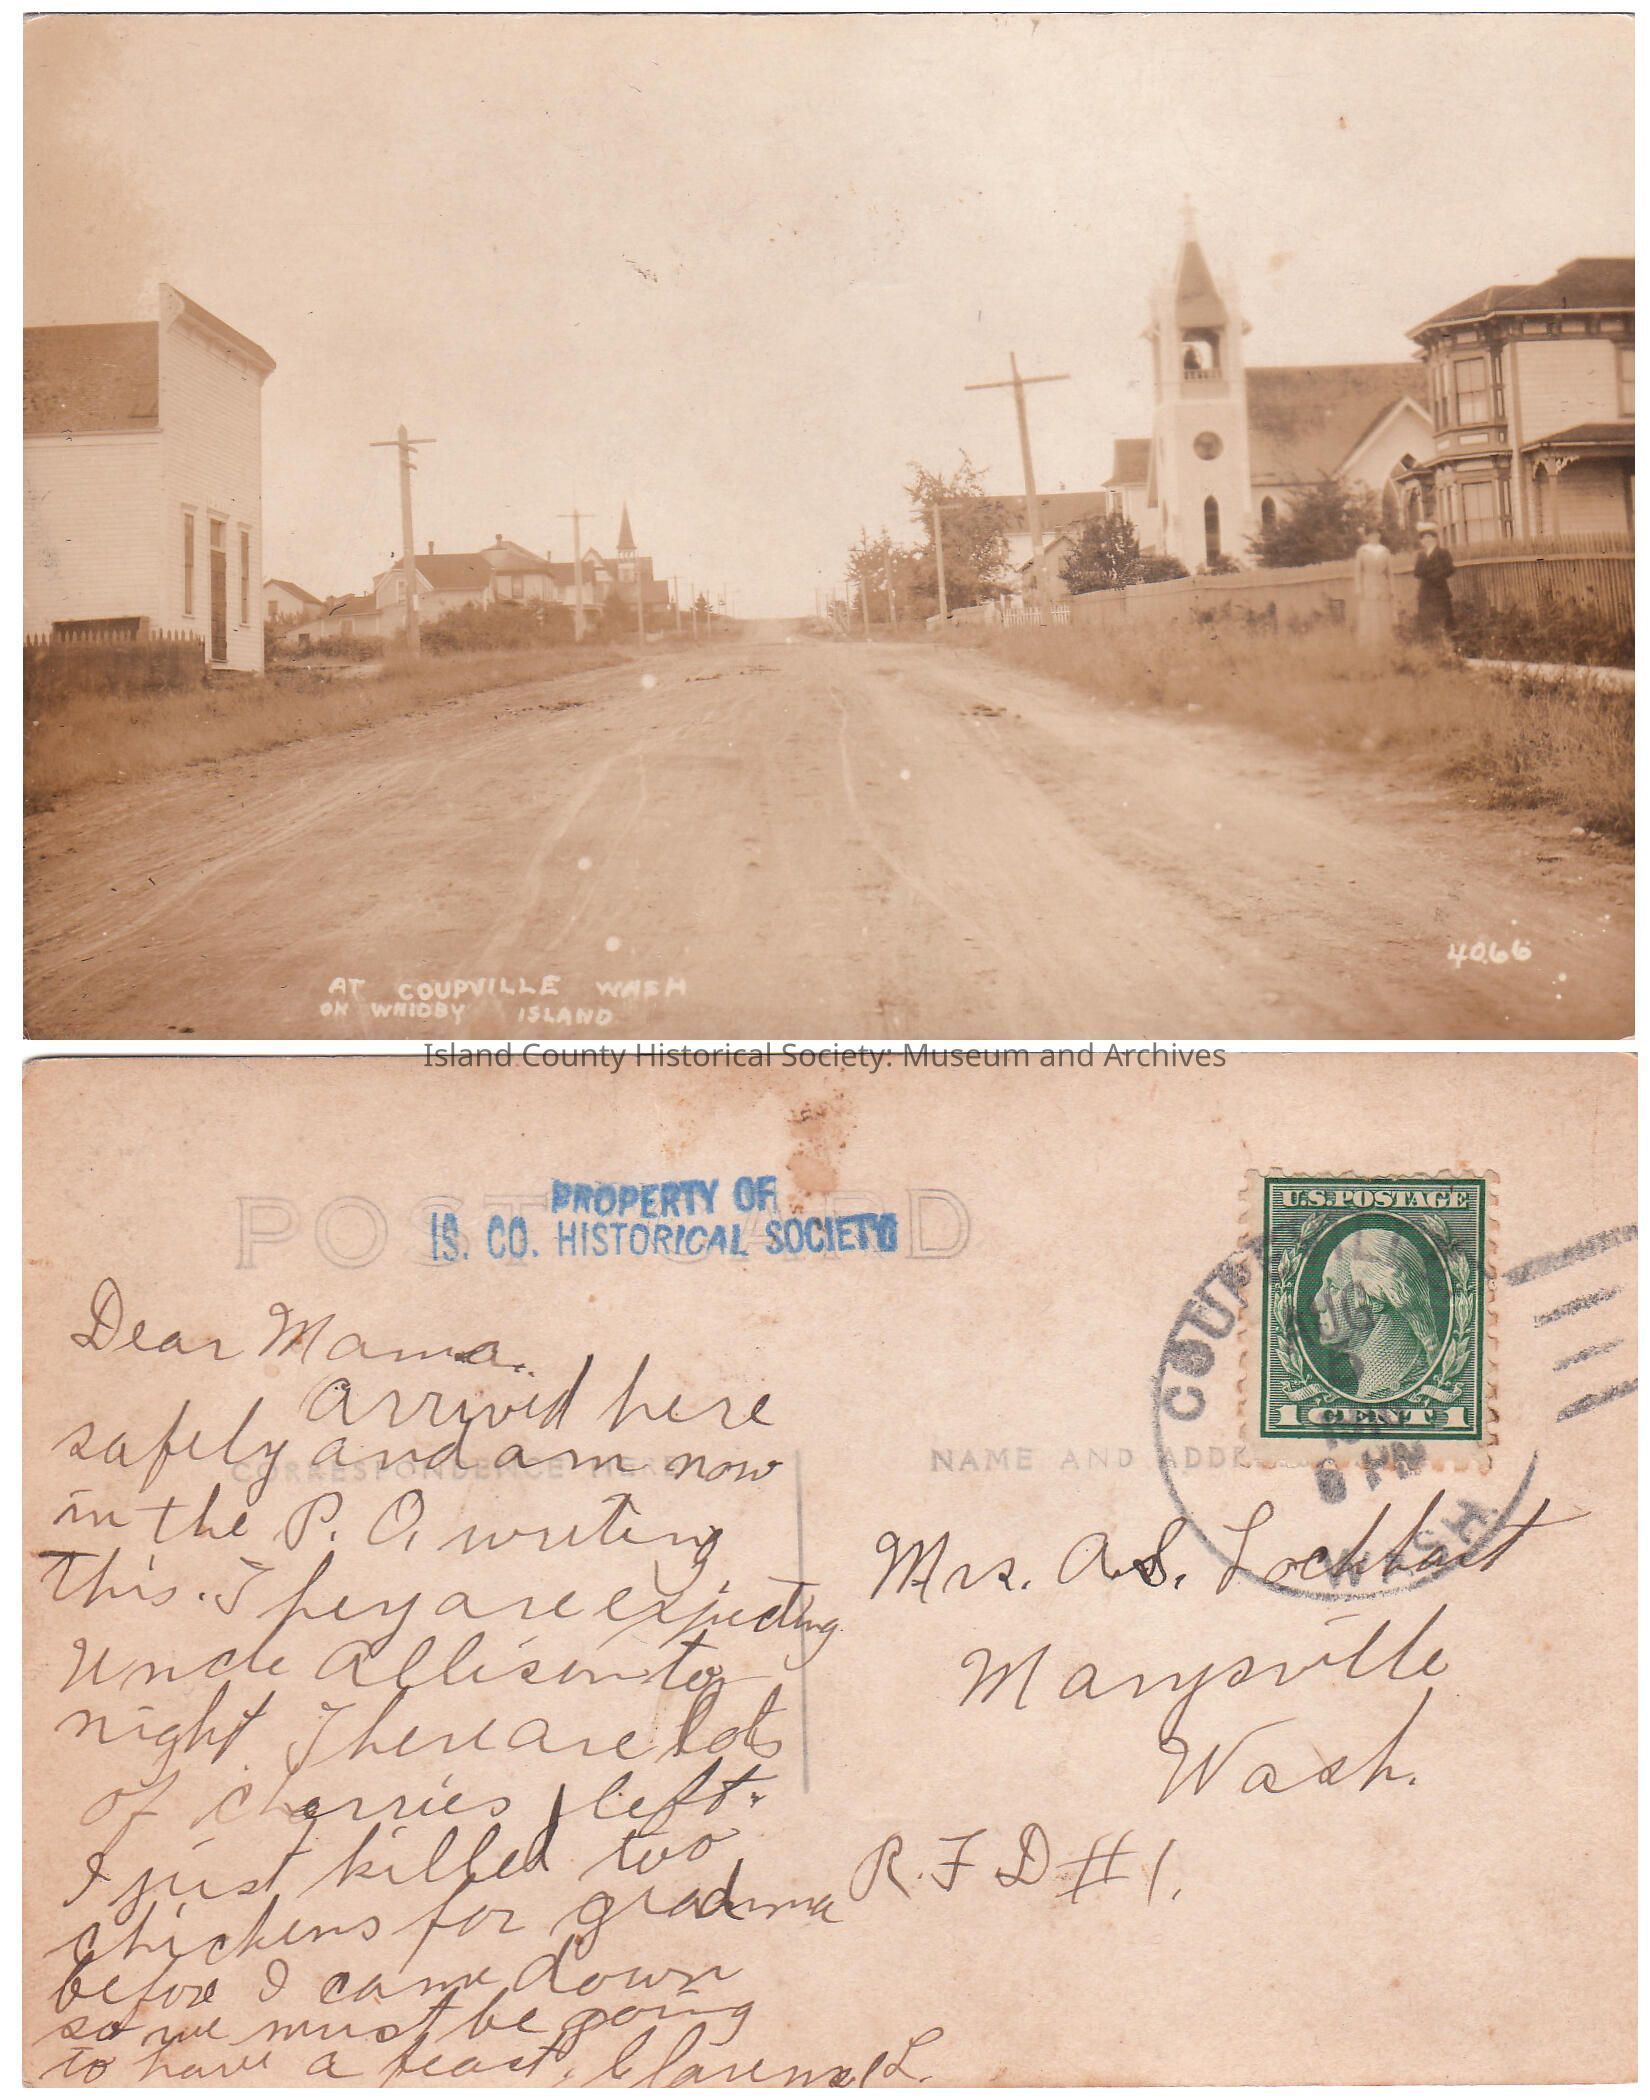 AT COUPVILLE WASH
ON WHIDBY ISLAND
4066
Island County Historical Society: Museum and Archives
POST CARD
PROPERTY OF
IS. CO. HISTORICAL SOCIETY
U.S. POSTAGE
1 CENT 1
COUPEVILLE
6 PM
WASH.
CORRESPONDENCE HERE
NAME AND ADDRE
Dear Mama.
Arrived here
safely and am now
in the P. O. writing
this. They are expecting
Uncle Allison to
night There are lots
of cherries left.
I just killed two
chickens for gradma
before I came down
so we must be going
to have a feast. Clarence L.
Mrs. A. S. Lockhart
Marysville
Wash.
R. F D # 1.